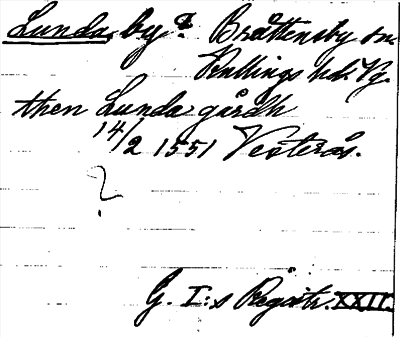 Lunda, by? Brättensby sn.
Kullings hd. Vg.
then Lunda gårdh
14/2 1551 Vesterås.
?
G. I:s Registr. XXII.